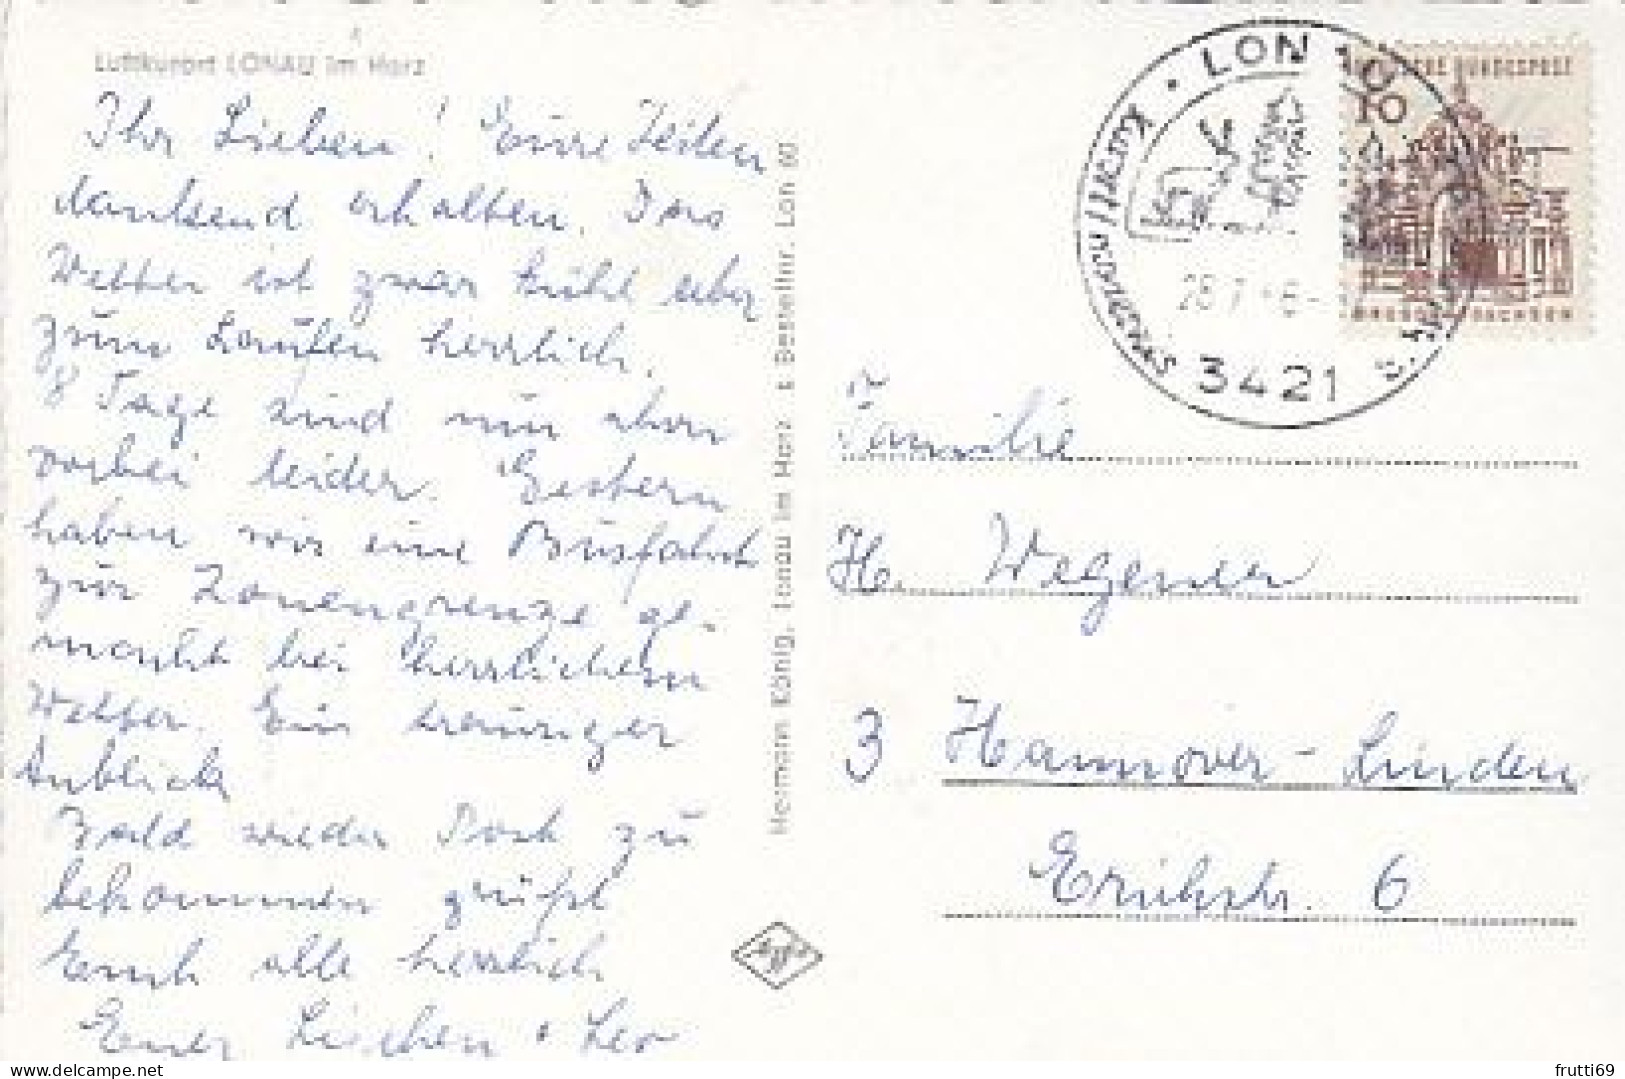 Luftkurort LONAU im Harz
Ihr Lieben! Eure Zeilen
dankend erhalten. Das
Wetter ist zwar kühl aber
zum Laufen herrlich.
8 Tage sind nun schon
vorbei leider. Gestern
haben wir eine Busfahrt
zur Zonengrenze ge-
macht bei herrlichem
Wetter. Ein trauriger
Anblick
Bald wieder Post zu
bekommen grüßt
Euch alle herzlich
Euer Lischen + Leo
Hermann König, Lonau im Harz Bestellnr. Lon 60
Agfa
LON
3421
DEUTSCHE BUNDESPOST
10
SACHSEN
Familie
H. Wegener
3 Hannover-Linden
Erichstr. 6
www.delcampe.net
frutti69